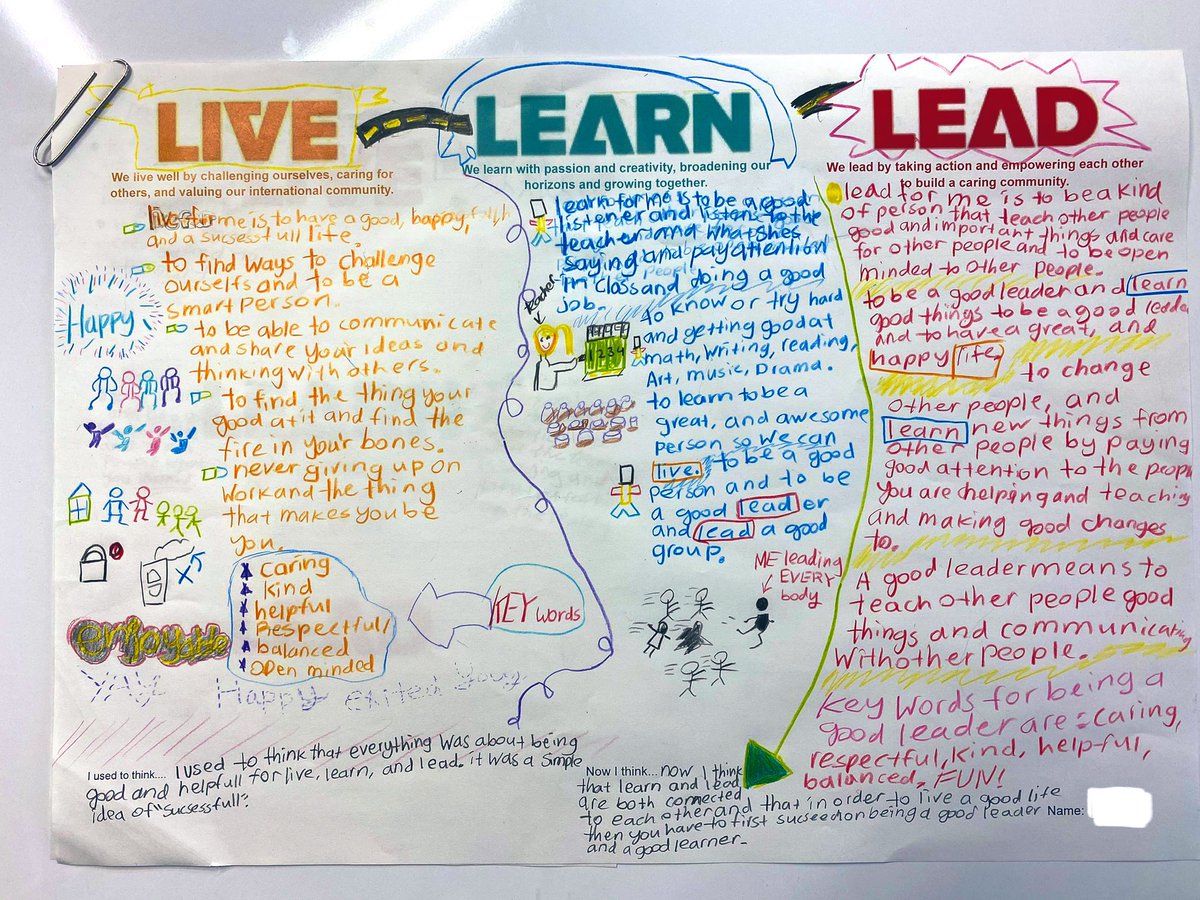 LIVE
We live well by challenging ourselves, caring for
others, and valuing our international community.
live for me is to have a good, happy,
and a sucsessfull life.
to find ways to challenge
ourselfs and to be a
smart person.
Happy
to be able to communicate
and share your ideas and
thinking with others.
to find the thing your
good at it and find the
fire in your bones.
never giving up on
work and the thing
that makes you be
you.
caring
kind
helpful
Respectful
balanced
open minded
KEY words
enjoyable
YAY Happy exited Yay
LEARN
We learn with passion and creativity, broadening our
horizons and growing together.
learn for me is to be a good
listener and listens to the
teacher and what shes
saying and pay attention
in class and doing a good
job.
teacher
1234
to know or try hard
and getting good at
math, writing, reading,
Art, music, Drama.
to learn to be a
great, and awesome
person so we can
live. to be a good
person and to be
a good leader
and lead a good
group.
ME leading
EVERY
body
LEAD
We lead by taking action and empowering each other
to build a caring community.
lead for me is to be a kind
of person that teach other people
good and important things and care
for other people and to be open
minded to other people.
to be a good leader and learn
good things to be a good leader
and to have a great, and
happy life.
to change
other people, and
learn new things from
other people by paying
good attention to the people
you are helping and teaching
and making good changes
to.
A good leader means to
teach other people good
things and communicating
with other people.
Key words for being a
good leader are: caring,
respectful, kind, helpful,
balanced, FUN!
I used to think.... I used to think that everything was about being
good and helpfull for live, learn, and lead. it was a simple
idea of "sucsessfull".
Now I think... now I think
that learn and lead
are both connected
to each other and that in order to live a good life
then you have to first sucseed on being a good leader
and a good learner.
Name: